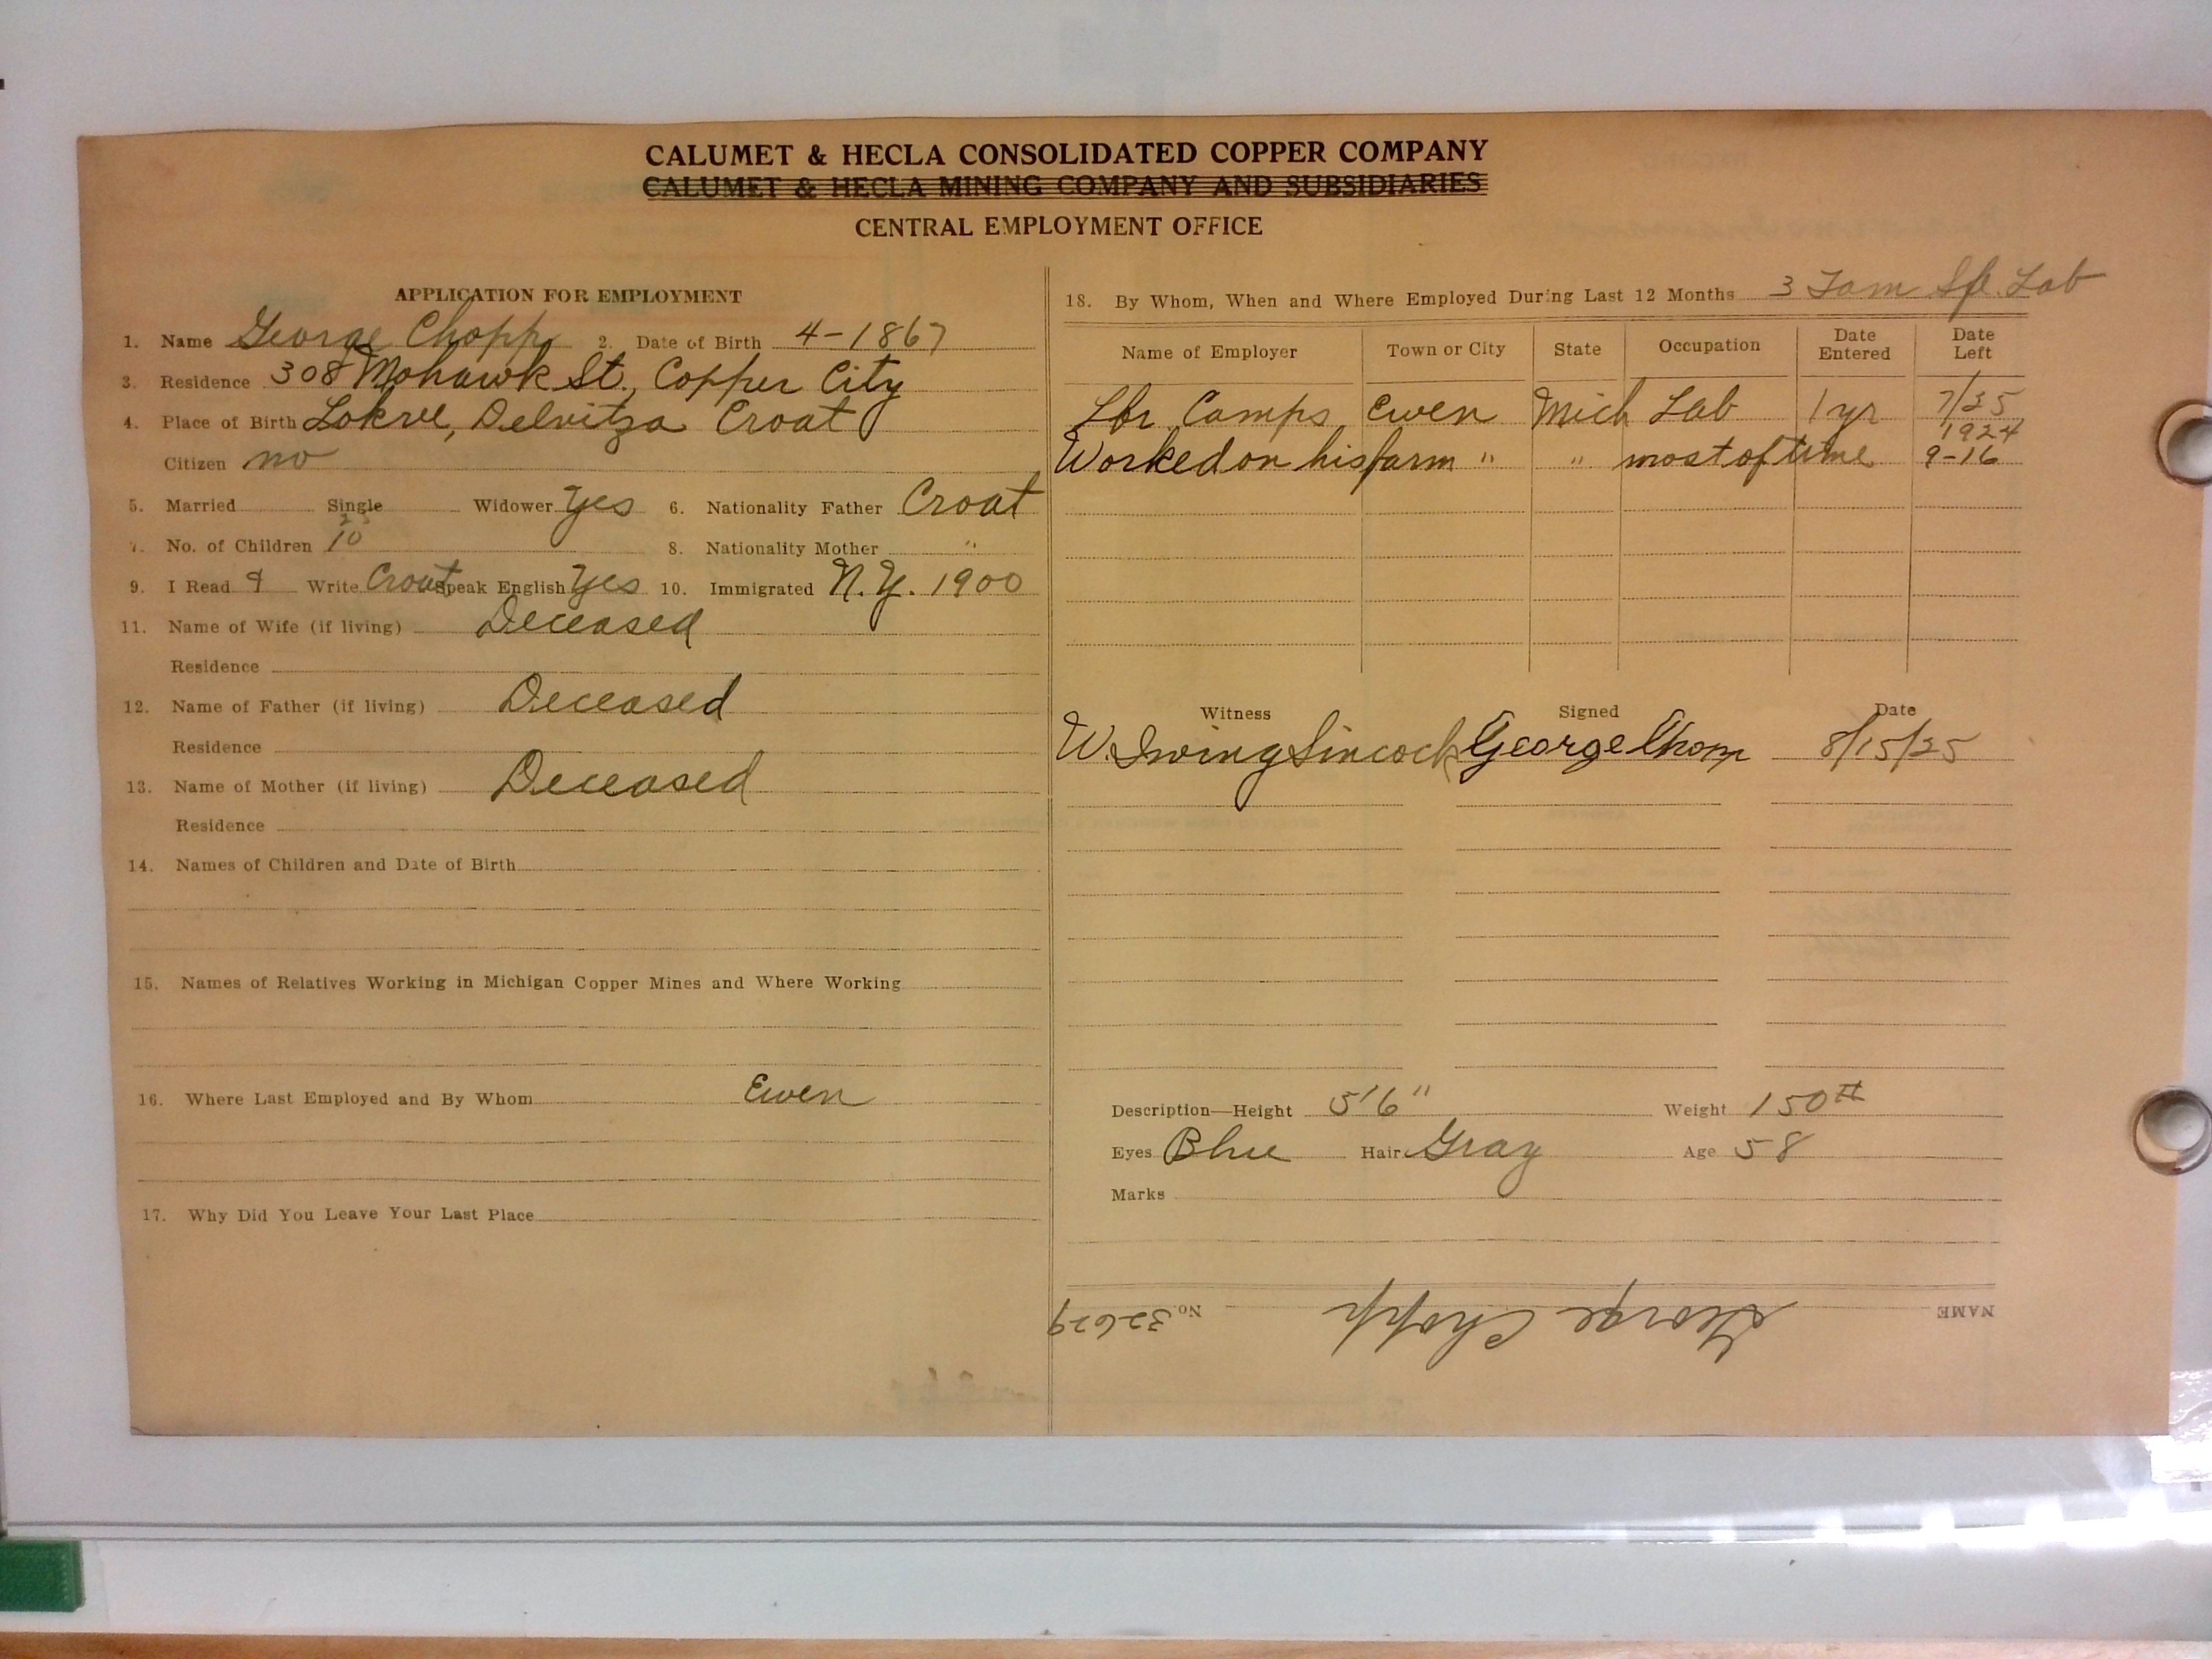 CALUMET & HECLA CONSOLIDATED COPPER COMPANY
CALUMET & HECLA MINING COMPANY AND SUBSIDIARIES
CENTRAL EMPLOYMENT OFFICE
APPLICATION FOR EMPLOYMENT
1. Name George Chopp 2. Date of Birth 4-1867
3. Residence 308 Mohawk St., Copper City
4. Place of Birth Lokve, Delnitza Croat
Citizen no
5. Married Single Widower Yes 6. Nationality Father Croat
7. No. of Children 10 8. Nationality Mother "
9. I Read & Write Croat Speak English Yes 10. Immigrated N.Y. 1900
11. Name of Wife (if living) Deceased
Residence
12. Name of Father (if living) Deceased
Residence
13. Name of Mother (if living) Deceased
Residence
14. Names of Children and Date of Birth
15. Names of Relatives Working in Michigan Copper Mines and Where Working
16. Where Last Employed and By Whom Ewen
17. Why Did You Leave Your Last Place
18. By Whom, When and Where Employed During Last 12 Months 3 Tam Sfc Lab
Name of Employer Town or City State Occupation Date Entered Date Left
Lbr Camps Ewen Mich Lab 1 yr 7/25
1924
Worked on his farm " " most of time 9-16
Witness Signed Date
W. Irving Sincock George Chopp 8/15/25
Description—Height 5'6" Weight 150#
Eyes Blue Hair Gray Age 58
Marks
NAME George Chopp No 32629